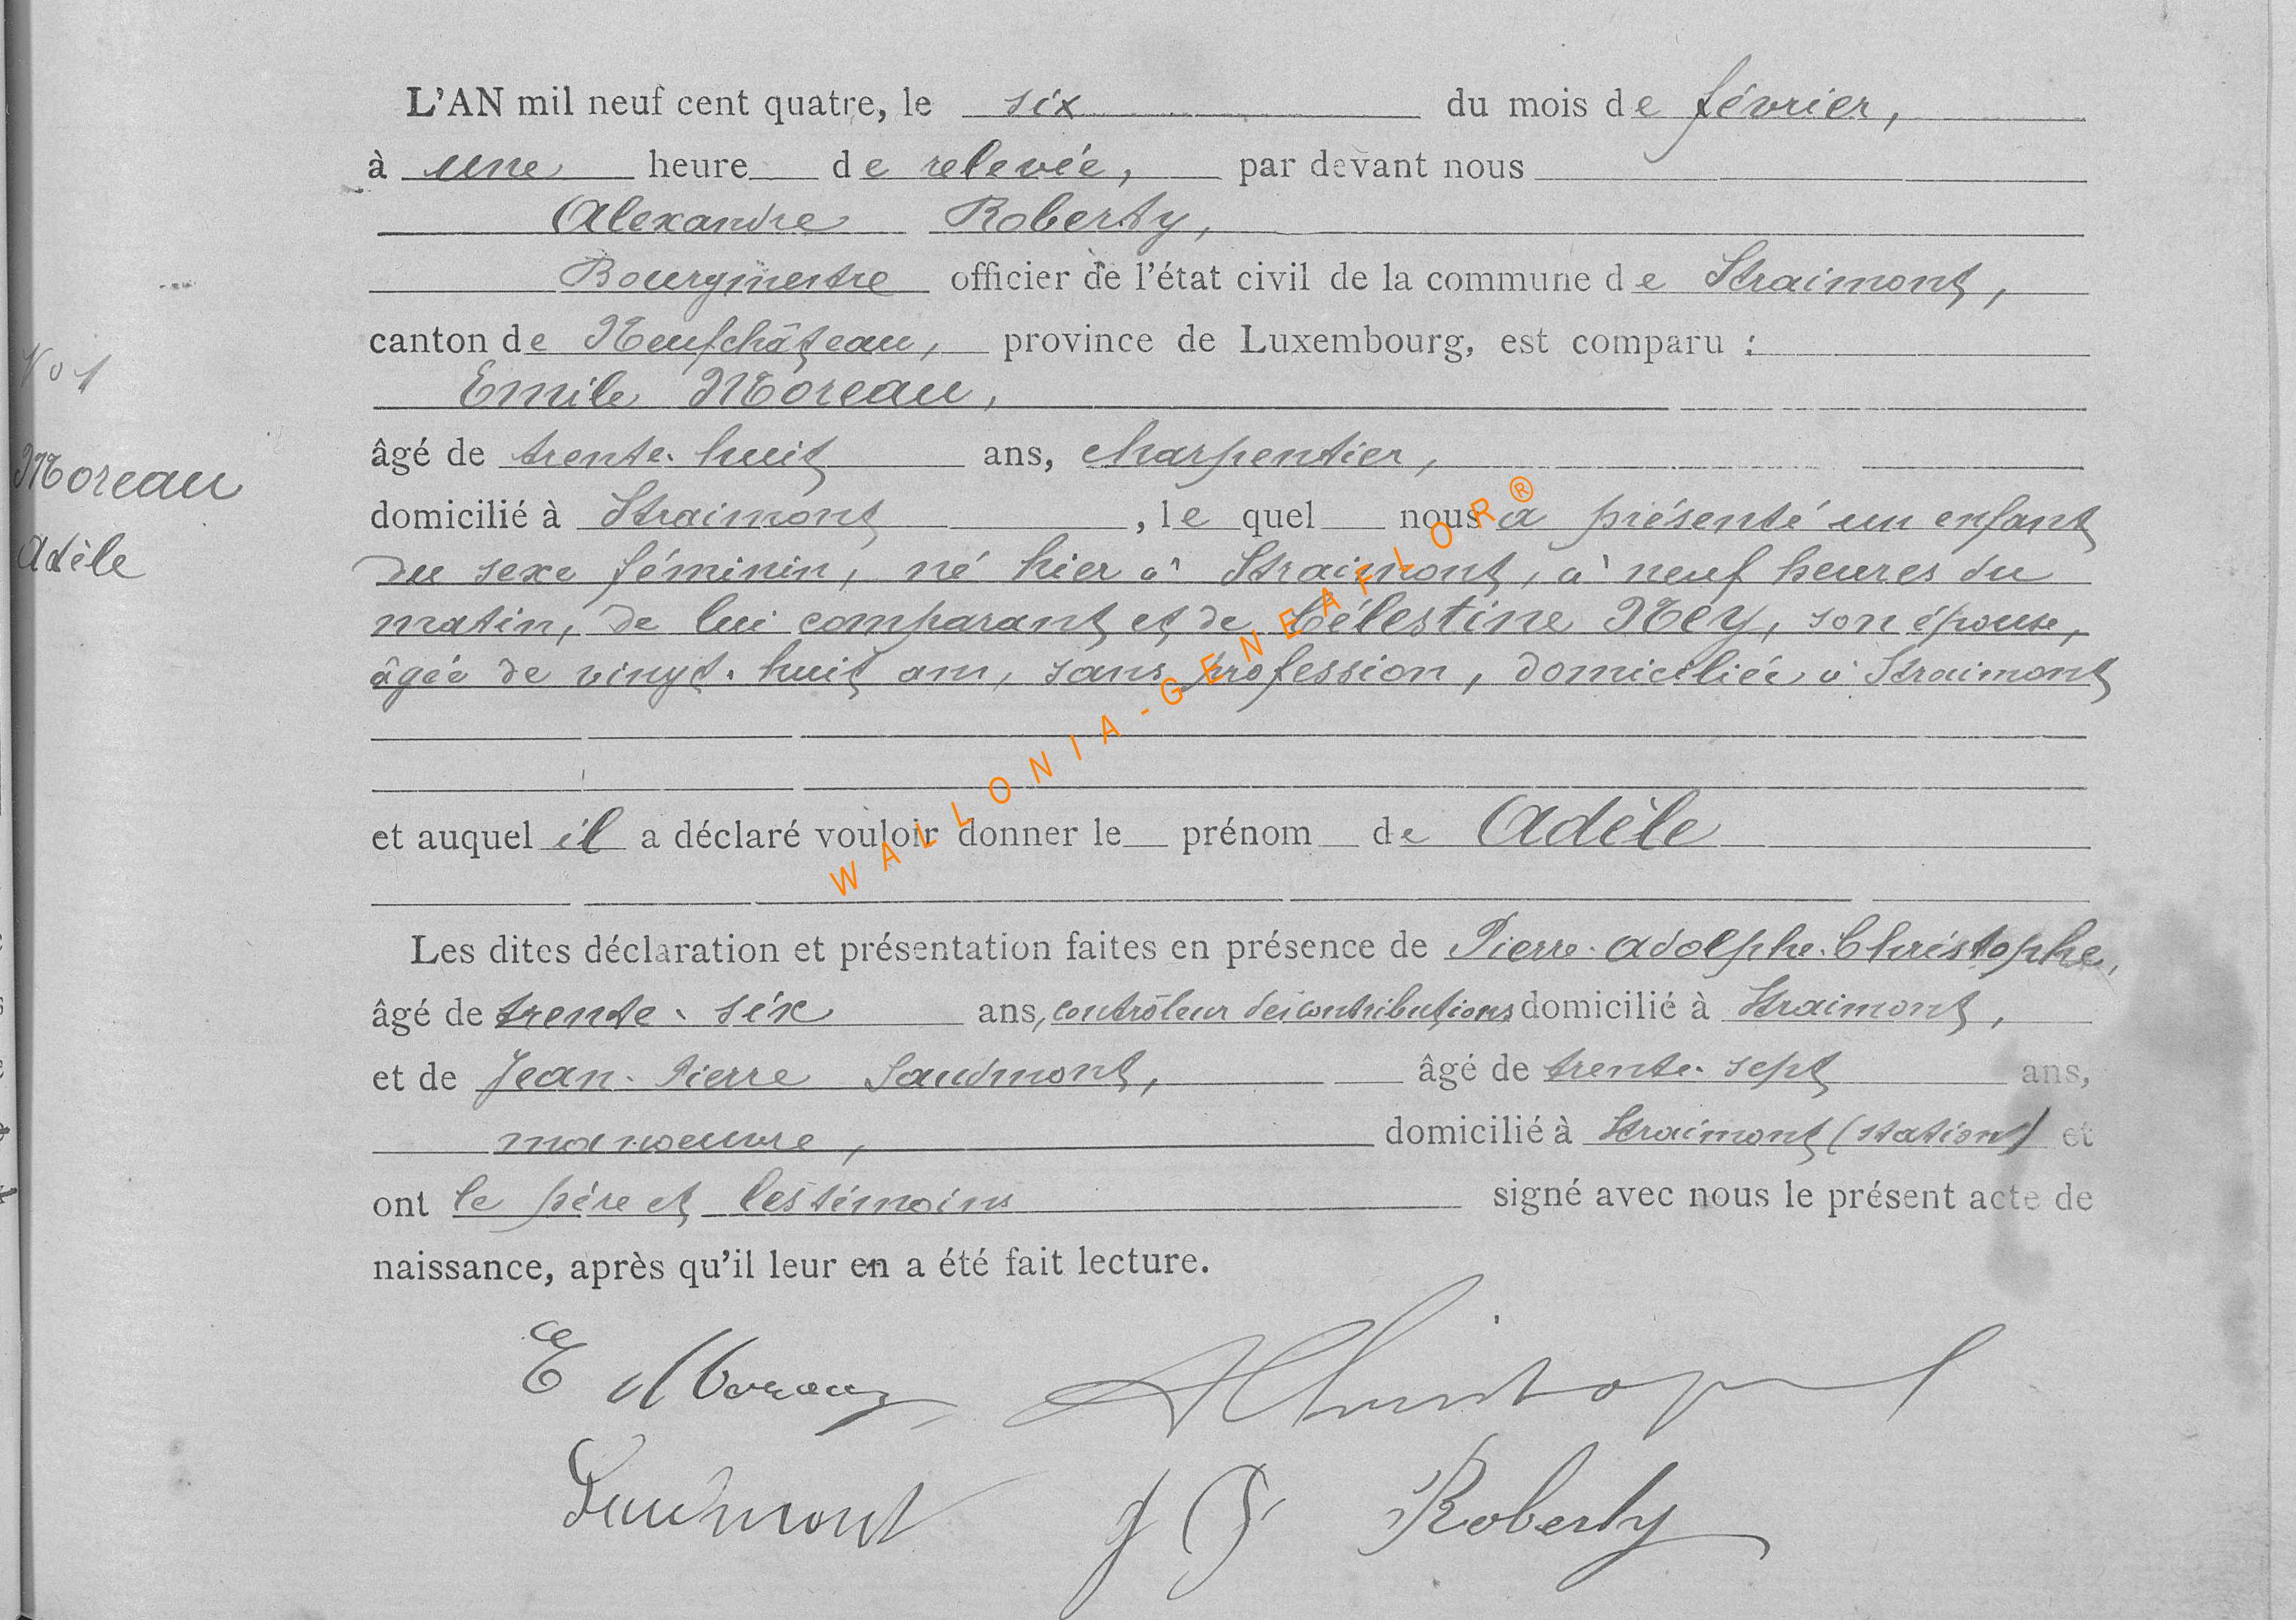 L'AN mil neuf cent quatre, le six du mois de février,
à une heure de relevée, par devant nous
Alexandre Roberty,
Bourgmestre officier de l'état civil de la commune de Straimont,
canton de Neufchâteau, province de Luxembourg, est comparu :
Emile Moreau,
âgé de trente-huit ans, charpentier,
domicilié à Straimont, le quel nous a présenté un enfant
du sexe féminin, né hier à Straimont, à neuf heures du
matin, de lui comparant et de Célestine Ney, son épouse,
âgée de vingt-huit ans, sans profession, domiciliée à Straimont
et auquel il a déclaré vouloir donner le prénom de Adèle
Les dites déclaration et présentation faites en présence de Pierre-Adolphe Christophe,
âgé de trente-six ans, contrôleur des contributions domicilié à Straimont,
et de Jean-Pierre Saudmont, âgé de trente-sept ans,
manoeuvre, domicilié à Straimont (station) et
ont le père et les témoins signé avec nous le présent acte de
naissance, après qu'il leur en a été fait lecture.
E Moreau
Saudmont J P Roberty
No 1
Moreau
Adèle
WALLONIA-GENEAFLOR®